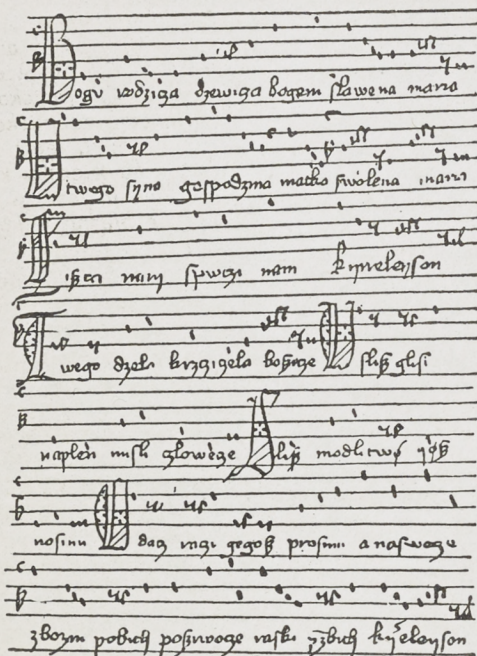 Bogu rodzicza dzewicza bogem slawena maria
twego syna gospodzina matko swolena maria
siszczi nam spwczi nam kyrieleyson
Twego dzela krzcziczela bozicze uslisz glosi
naplen misli czlowecze slisz modlitwø yøsz
nosimi oddacz raczi gegosz prosimi a naswecze
zbozni pobith posziwocze raski przebith kyrieleyson